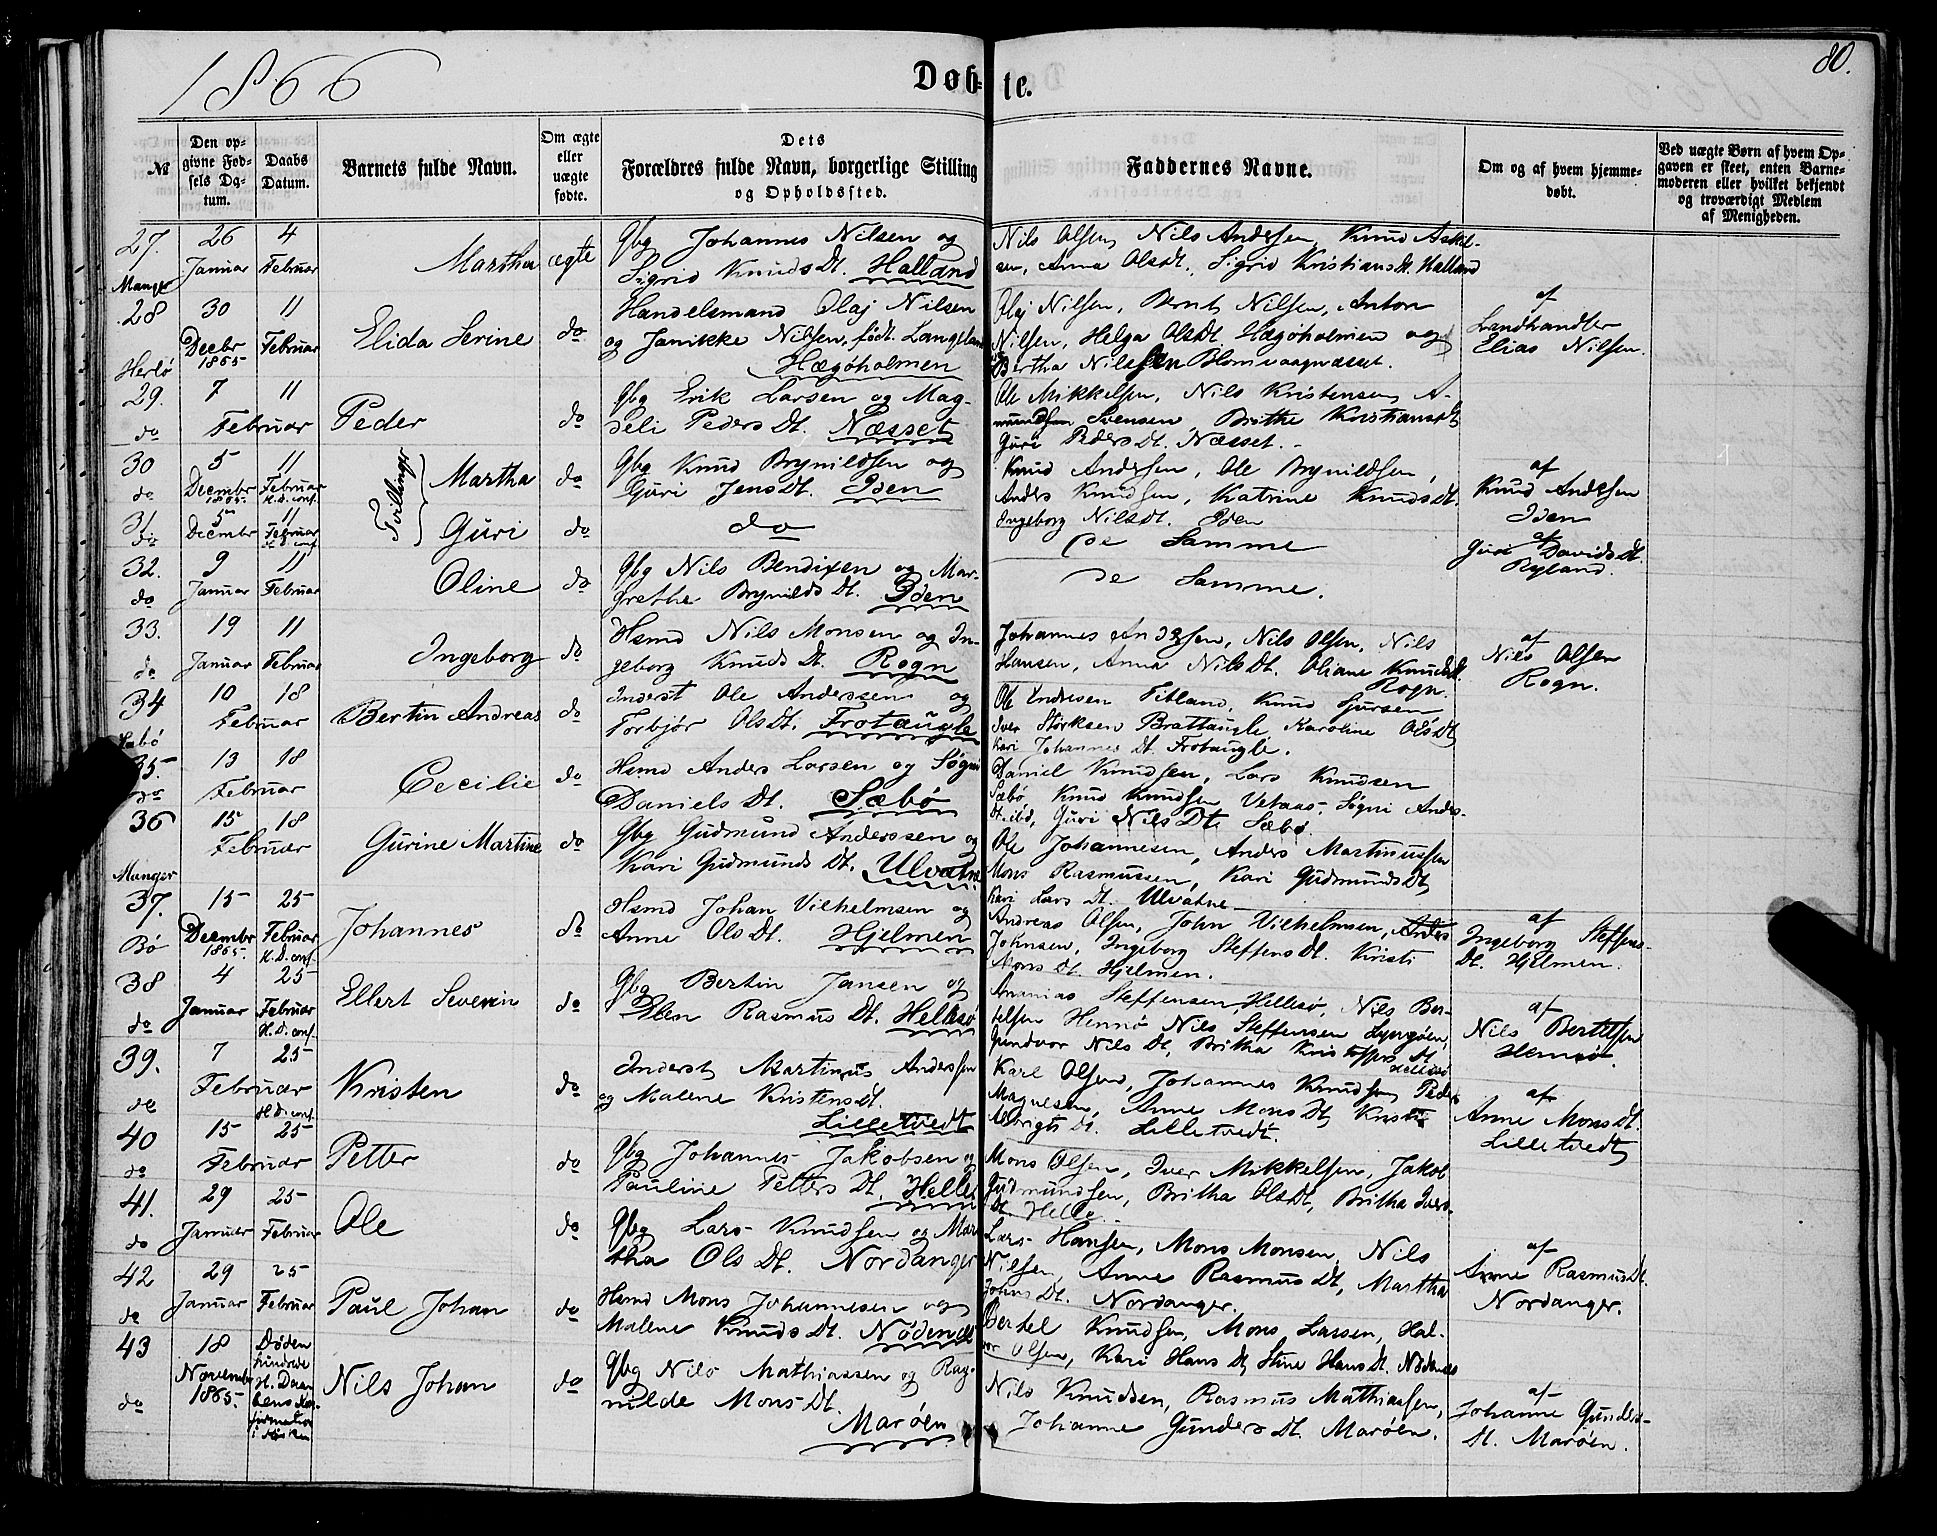 1866
80.
Døb-te.
№
Den opgivne Fødsels Datum.
Daabs Datum.
Barnets fulde Navn.
Om ægte eller uægte fødte.
Dets Forældres fulde Navn, borgerlige Stilling og Opholdssted.
Faddernes Navne.
Om og af hvem hjemmedøbt.
Ved uægte Børn af hvem Opgaven er skeet, enten Barnemoderen eller hvilket bekjendt og troværdigt Medlem af Menigheden.
27. Manger
26 Januar
4 Februar
Martha
ægte
Gbg Johannes Nilsen og
Sigrid Knuds Dt. Halland
Nils Olsen, Nils Andersen, Knud Askel-
sen, Anna Olsdt., Sigrid Kristians Dt. Halland
28 Herlø
30 Decbr 1865
11 Februar
Elida Serine
do
Handelsmand Olaj Nilsen
og Janikke Nilsen, født Langeland
Hægøholmen
Olaj Nilsen, Bernt Nilsen, Anton
Nilsen, Helga OlsDt. Hægøholmen og
Bertha Nilssen Blomvaagnæsset.
af
Landhandler
Elias Nilsen.
29. do
7 Februar
11
Peder
do
Gbg Erik Larsen og Mag-
Seli Peders Dt. Næsset
Ole Mikkelsen, Nils Kristensen, A-
mundsen Svensen, Brithe Kristiansdt
Guri Peders Dt. Næsset.
30 do
5 Decembr 1865.
11 Februar H.D. conf.
Tvillinger
Martha
do
Gbg Knud Brynildsen og
Guri Jens Dt. Iden
Knud Andersen, Ole Brynildsen,
Anders Knudsen, Katrine Knuds Dt.
Ingeborg Nils Dt. Iden
af
Knud Andersen
Iden
31 do
5 Decembr
11 Februar H.D. conf
Guri
do
do
De Samme
af
Guri Davids Dt.
Ryland
32. do
9 Januar
11 Februar
Oline
do
Gbg Nils Bendixen og Mar-
grethe Brynilds Dt. Iden
De Samme.
33. do
19 Januar
11 Februar
Ingeborg
do
Hsmd Nils Monsen og In-
geborg Knuds Dt. Rogn
Johannes Andersen, Nils Olsen, Nils
Hansen, Anna Nils Dt. Oliane Knuds Dt.
Rogn.
af
Nils Olsen
Rogn.
34 Sæbø
10 Februar
18
Bertin Andreas
do
Inderst Ole Anderssen og
Torbjør Ols Dt. Frotaugle
Ole Endresen Titland, Knud Sjursen
Iver Størksen Brattaugle, Karoline Ols Dt
Kari Johannes Dt. Frotaugle.
35. do
13 Februar
18
Cecilie
do
Hsmd Anders Larsen og Søgni
Daniels Dt. Sæbø
Daniel Knudsen, Lars Knudsen
Sæbø, Knud Knudsen Vetaas, Søgni Anders-
Dt. ibd, Guri Nils Dt. Sæbø.
36 Manger
15 Februar
18
Gurine Martine
do
Gbg Gudmund Anderssen og
Kari Gudmunds Dt. Ulvatne
Ole Johannesen, Anders Martinussen
Mons Rasmussen, Kari Gudmunds Dt,
Kari Lars Dt. Ulvatne
37. Bø
15 Decembr 1865.
25 Februar H.D. conf.
Johannes
do
Hsmd Johan Vilhelmsen og
Anne Ols Dt. Hjelmen
Andreas Olsen, John Vilhelmsen, Anders
Johnsen, Ingeborg Steffens Dt. Kristi
Mons Dt. Hjelmen.
af
Ingeborg Steffens-
Dt. Hjelmen.
38 do
4 Januar
25 Februar H.D. conf.
Ellert Severin
do
Gbg Bertin Jansen og
Elen Rasmus Dt. Hellesø
Ananias Steffensen Hellesø, Nils Ber-
telsen Hernø Nils Steffensen Lyngøen,
Gundvor Nils Dt, Britha Kristoffers Dt
Hellesø
af
Nils Bertelsen
Hernø
39. do
7 Februar
25 H.D. conf.
Kristen
do
Inderst Martinus Andersen
og Malene Kristensdt.
Lilletvedt
Karl Olsen, Johannes Knudsen, Peder
Magnesen, Anne Mons Dt, Kristi
Dt. Lilletvedt.
af
Anne Mons Dt.
Lilletvedt
40 do
15 Februar
25
Petter
do
Gbg Johannes Jakobsen og
Pauline Petters Dt. Helle
Mons Olsen, Iver Mikkelsen, Jakob
Gudmundsen, Britha Ols Dt, Britha Ivers-
Dt. Helle.
41. do
29 Januar
25 Februar
Ole
do
Gbg Lars Knudsen og Mar
tha Ols Dt. Nordanger
Lars Hansen, Mons Monsen, Nils
Nilsen, Anne Rasmus Dt, Martha
Johns Dt. Nordanger.
af
Anne Rasmus Dt.
Nordanger.
42 do
29 Januar
25 Februar
Paul Johan
do
Hsmd Mons Johannesen og
Malene Knuds Dt. Nødenæs
Bertel Knudsen, Mons Larsen, Hal-
vor Olsen, Kari Hans Dt, Stine Hans Dt. Nødenæs
43 do
18 November 1865.
Døden hindrede H. Daabens Konfirmation i Kirken
Nils Johan
do
Gbg Nils Mathiassen og Rag-
nilde Mons Dt.
Marøen
Nils Knudsen, Rasmus Mathiassen,
Johanne Gunders Dt. Marøen.
af
Johanne Gunders-
Dt. Marøen.